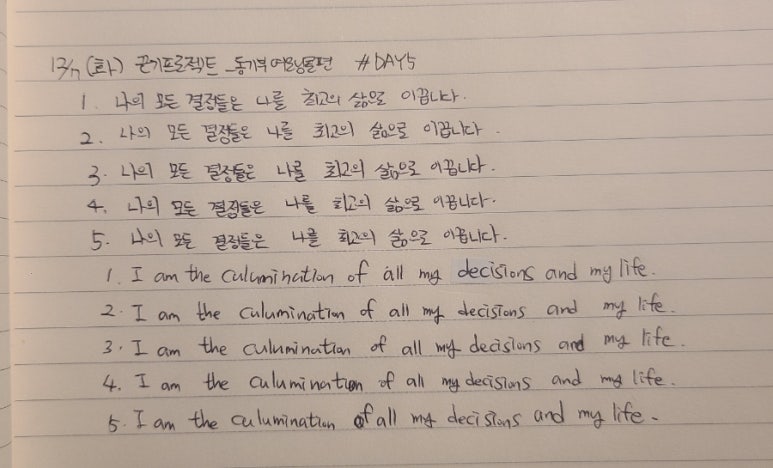 12/7 (화) 끈기프로젝트 동기부여모닝콜편 #DAY5
1. 나의 모든 결정들은 나를 최고의 삶으로 이끕니다.
2. 나의 모든 결정들은 나를 최고의 삶으로 이끕니다.
3. 나의 모든 결정들은 나를 최고의 삶으로 이끕니다.
4. 나의 모든 결정들은 나를 최고의 삶으로 이끕니다.
5. 나의 모든 결정들은 나를 최고의 삶으로 이끕니다.
1. I am the culumination of all my decisions and my life.
2. I am the culumination of all my decisions and my life.
3. I am the culumination of all my decisions and my life.
4. I am the culumination of all my decisions and my life.
5. I am the culumination of all my decisions and my life.